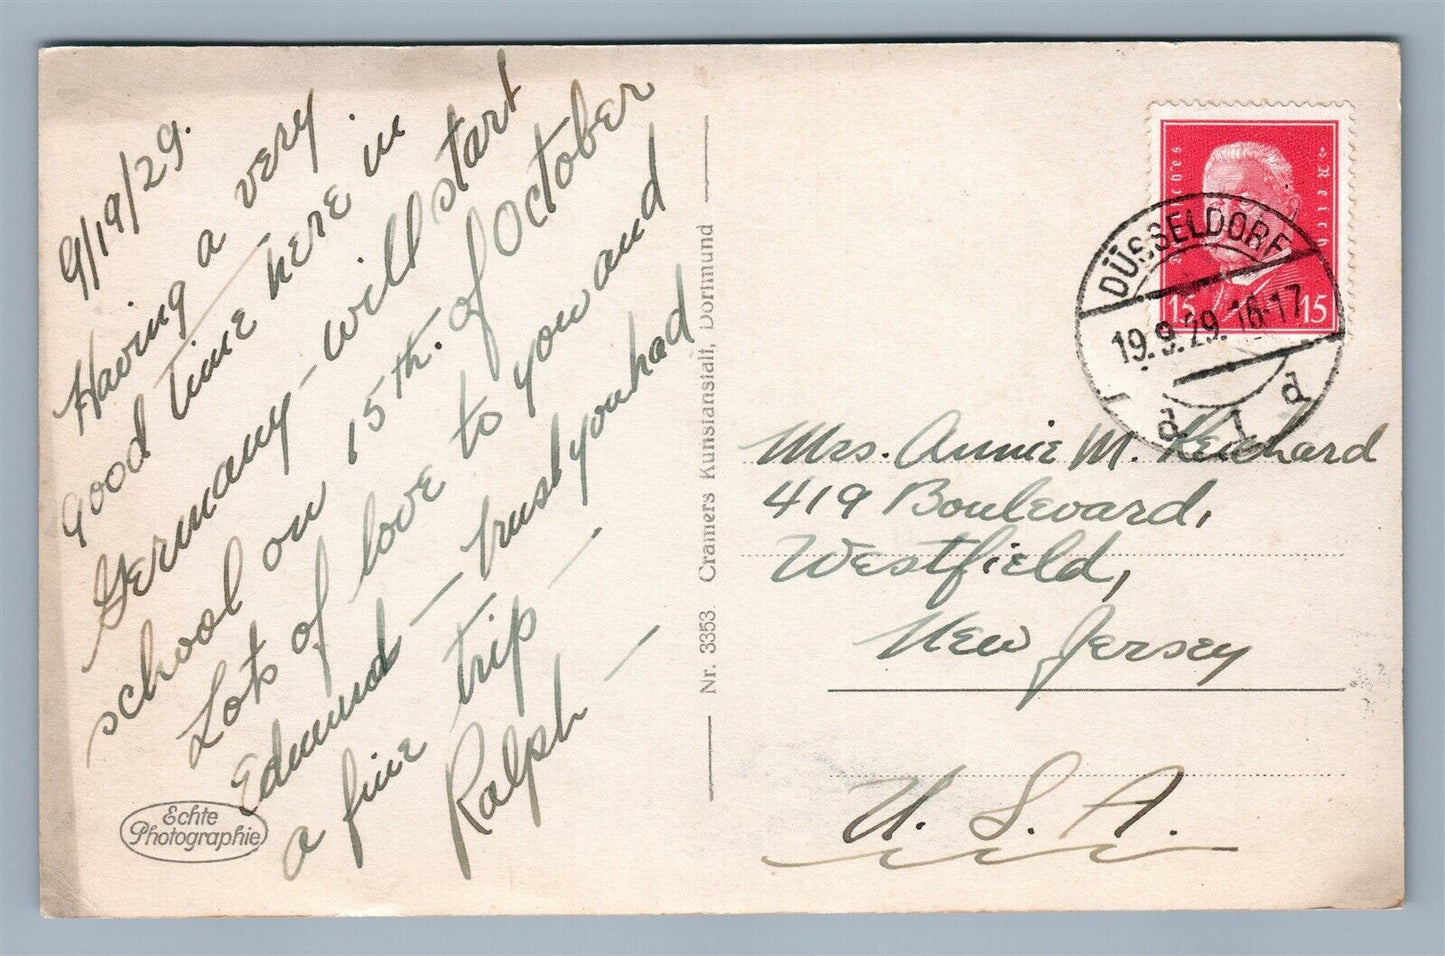 9/19/29.
Having a very
good time here in
Germany - will start
school on 15th. of October
Lots of love to you and
Edmund - trust you had
a fine trip -
Ralph -
Echte
Photographie
Nr. 3353. Cramers Kunstanstalt, Dortmund
Deutsches Reich
15 15
DÜSSELDORF
19.9.29. 16-17
d 1 d
Mrs. Annie M. Reichard
419 Boulevard,
Westfield,
New Jersey
U. S. A.